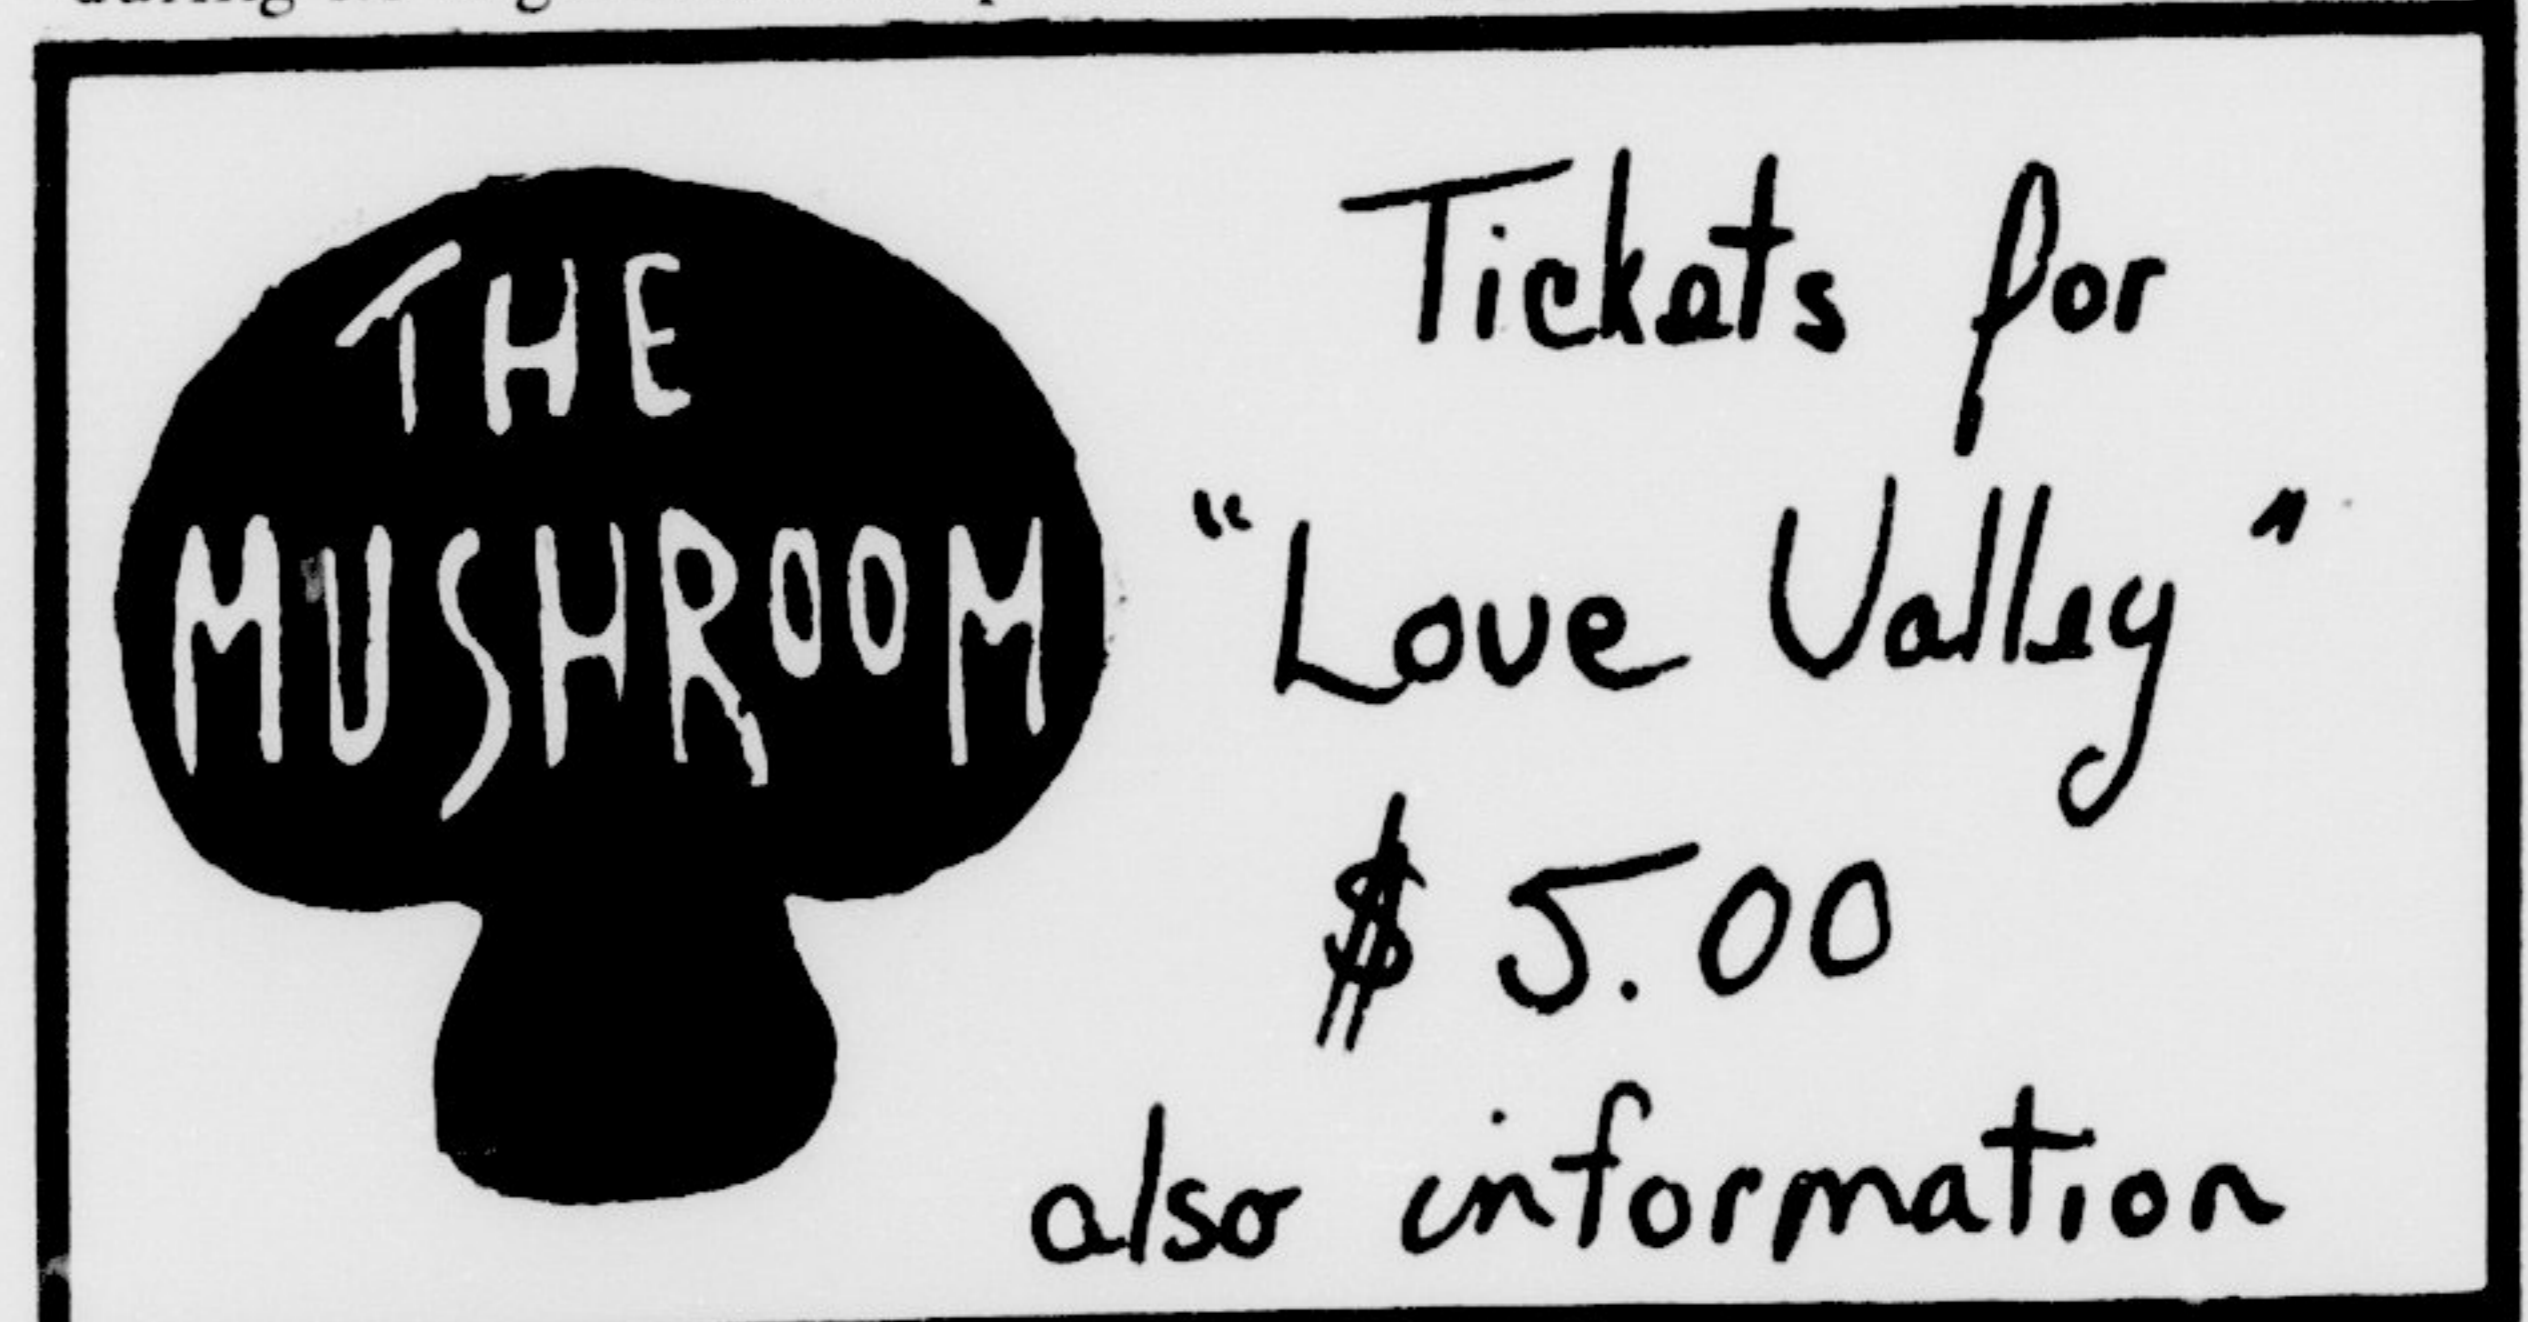 THE
MUSHROOM
Tickets for
"Love Valley"
$ 5.00
also information